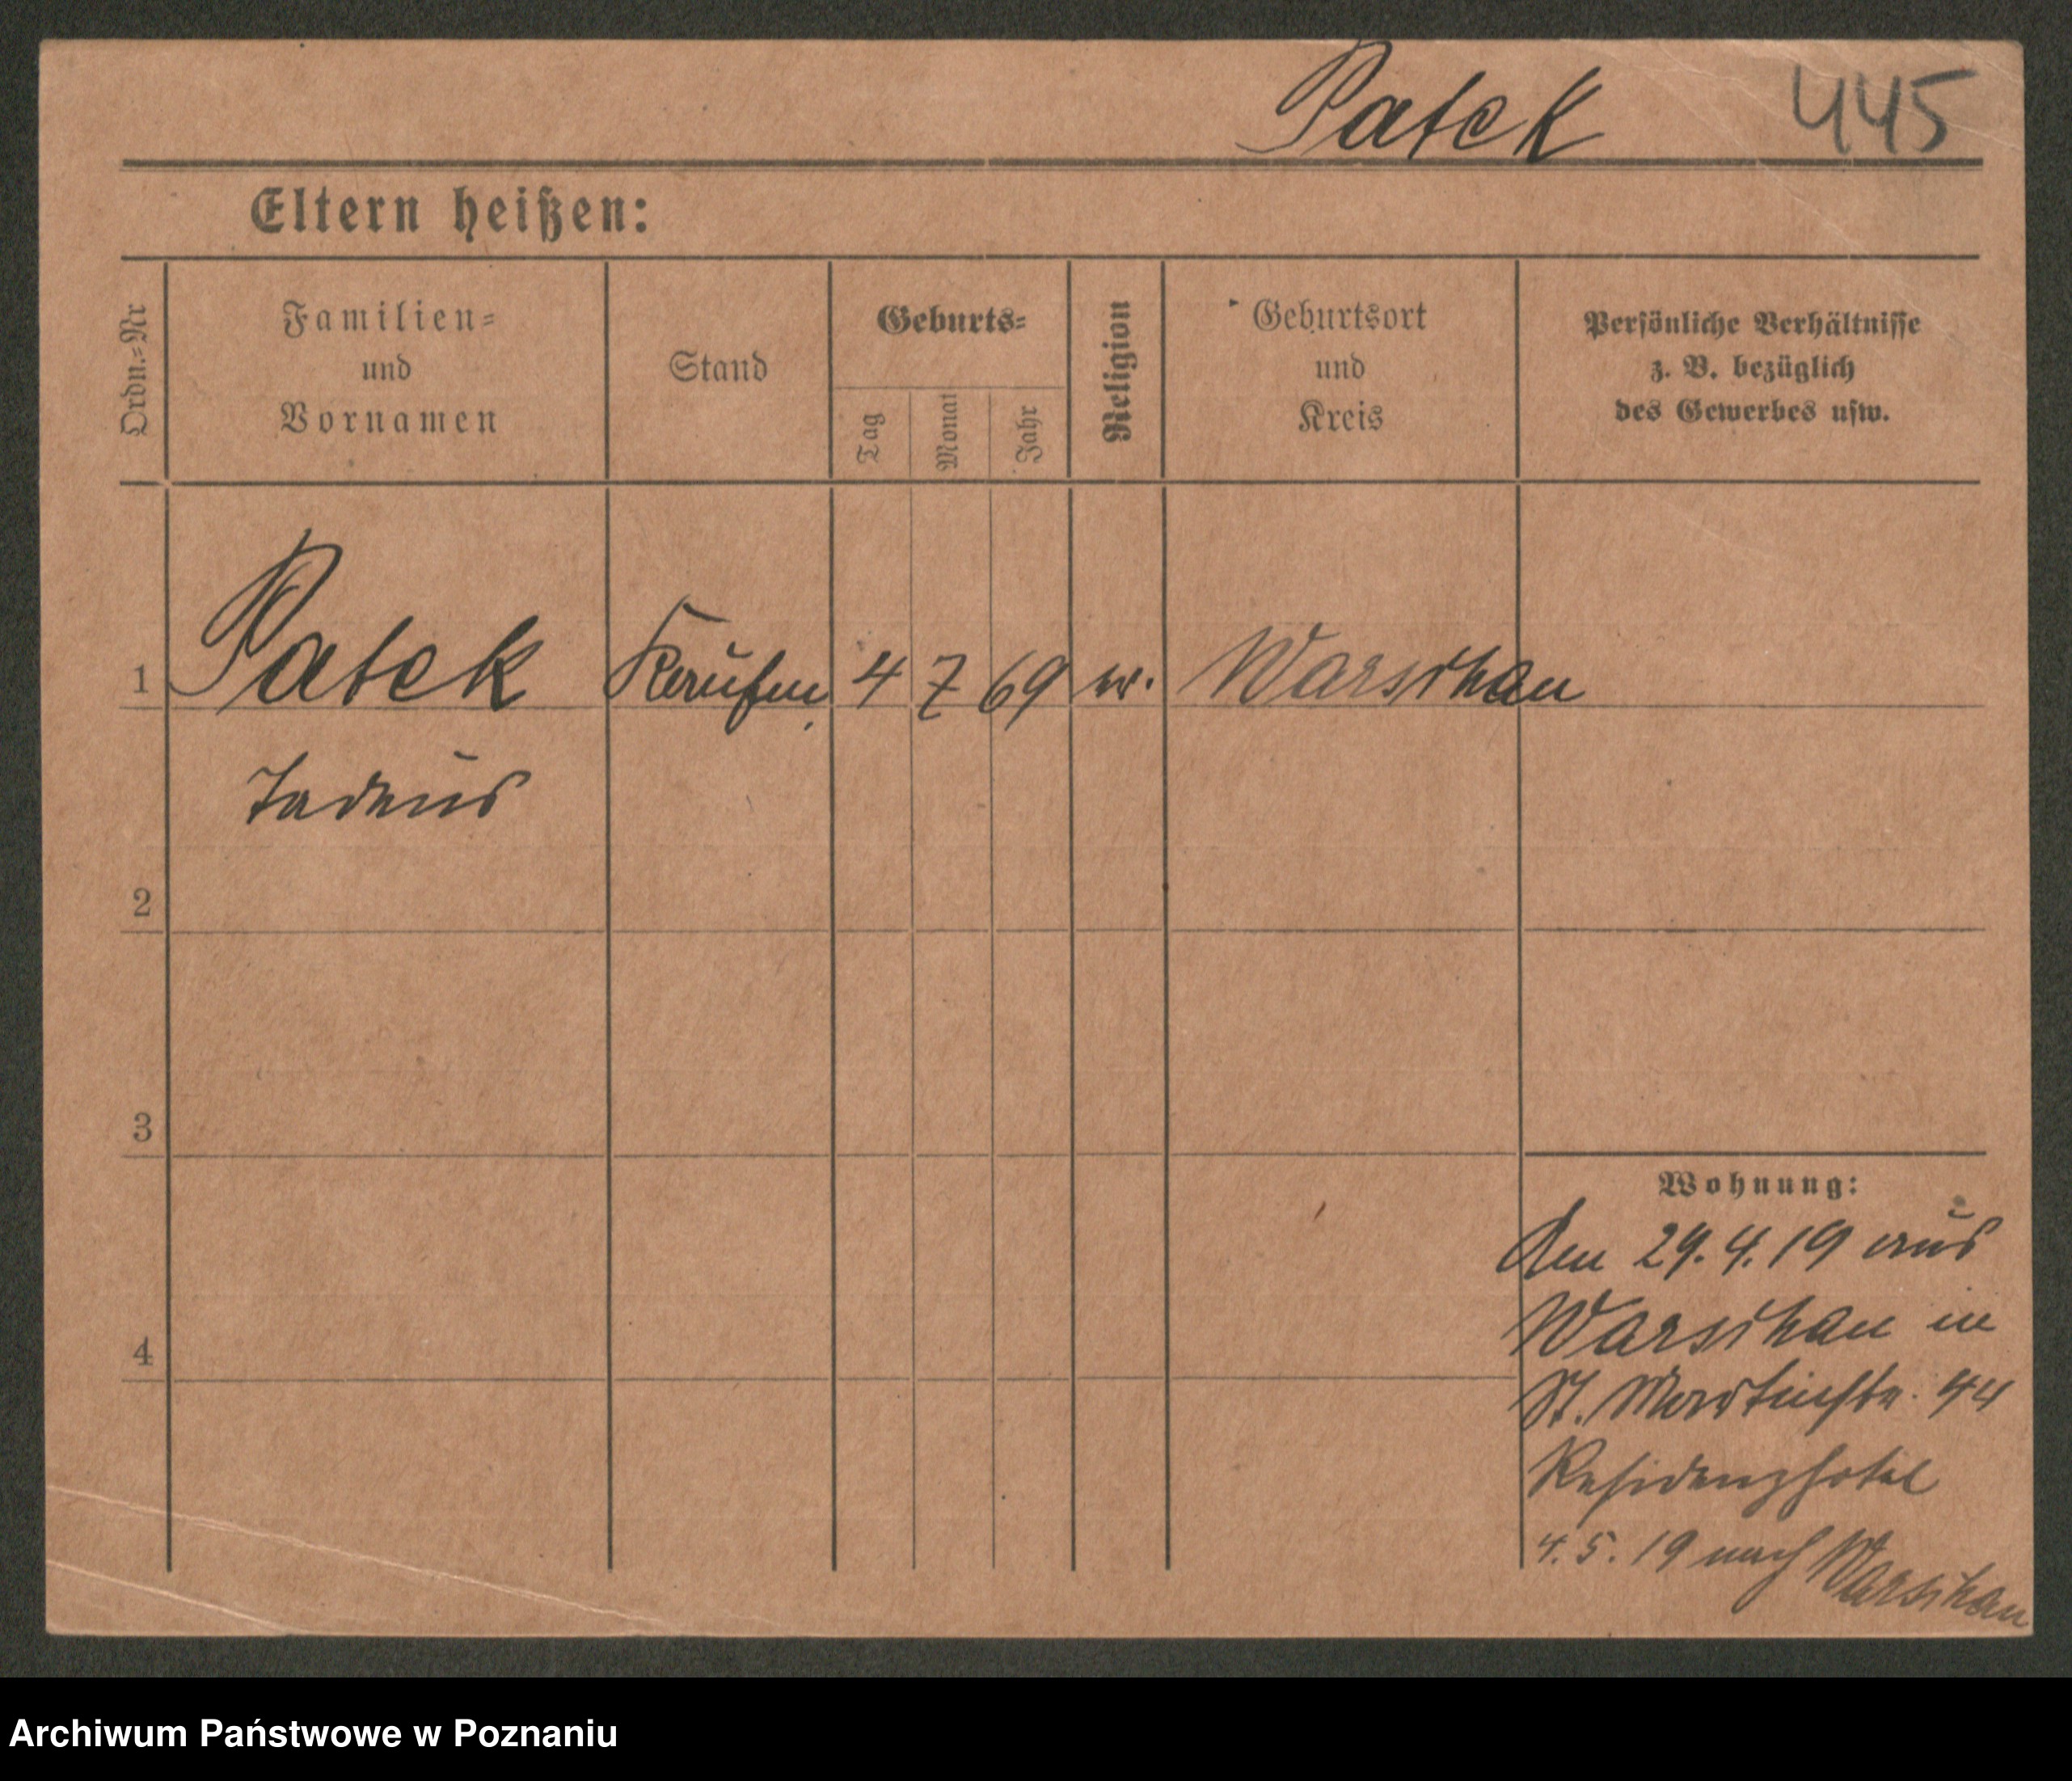 Patek 445
Eltern heißen:
Ordn.=Nr
Familien=
und
Vornamen
Stand
Geburts=
Tag
Monat
Jahr
Religion
Geburtsort
und
Kreis
Persönliche Verhältnisse
z. B. bezüglich
des Gewerbes usw.
1 Patek Kaufm. 4 7 69 Warschau
Tadeus
2
3
4
Wohnung:
Am 29.4.19 aus
Warschau in
St. Martinstr. 44
Residenzhotel
4.5.19 nach Warschau
Archiwum Państwowe w Poznaniu